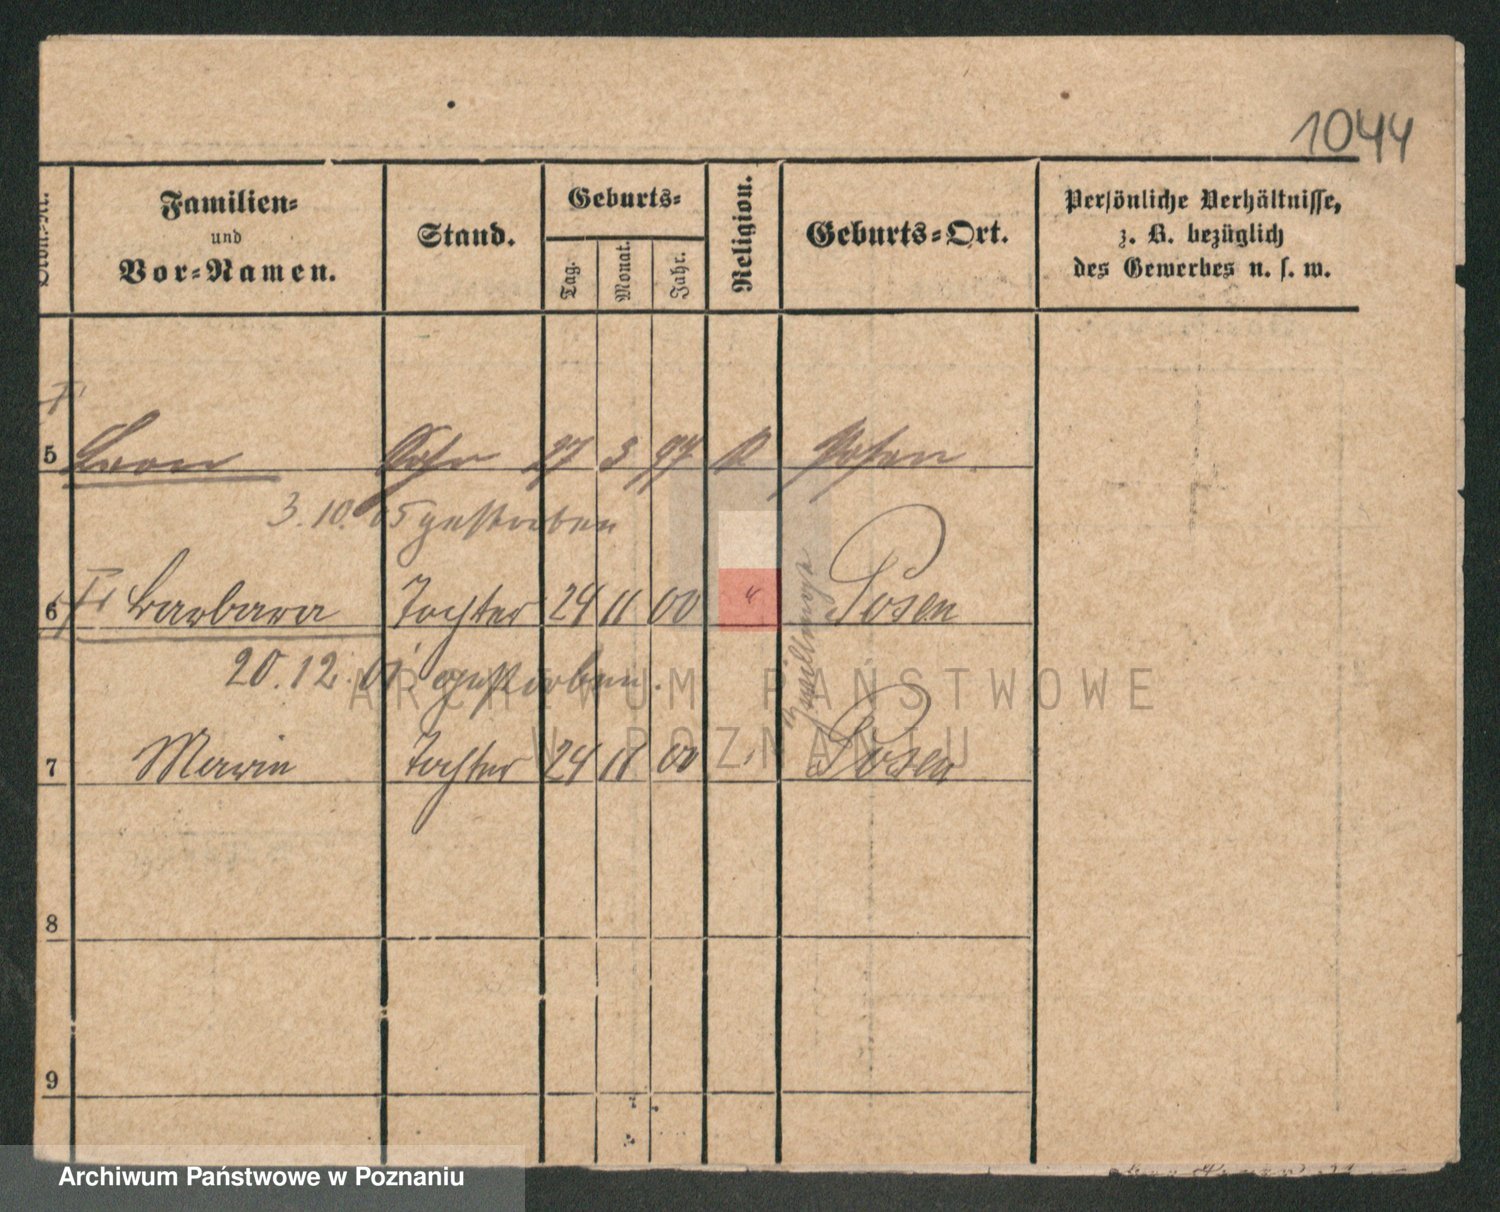 1044
Ordn.-Nr.
Familien-
und
Vor-Namen.
Stand.
Geburts-
Tag.
Monat.
Jahr.
Religion.
Geburts-Ort.
Persönliche Verhältnisse,
z. B. bezüglich
des Gewerbes u. s. w.
5 Leon Sohn 27 3 97 k Posen
3.10.05 gestorben
6 Barbara Tochter 24 11 00 " Posen
20.12.01 gestorben.
Zwillinge
7 Marie Tochter 24 11 00 " Posen
8
9
ARCHIWUM PAŃSTWOWE
W POZNANIU
Archiwum Państwowe w Poznaniu